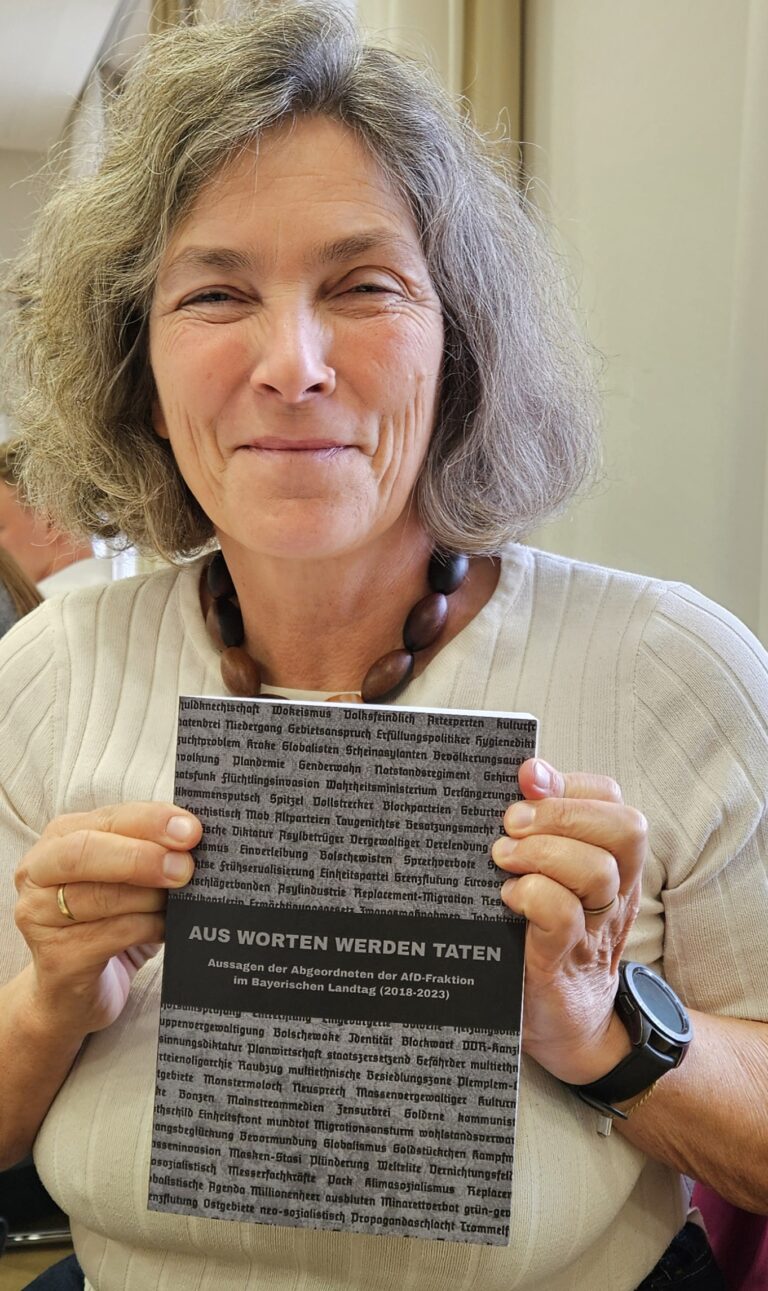 huldknechtschaft Wokeismus Volksfeindlich Artexperten kulturfr
atenbrei Niedergang Gebietsanspruch Erfüllungspolitiker Hygienedikt
zuchtproblem Krake Globalisten Scheinasylanten Bevölkerungsaus
volkung Plandemie Genderwahn Notstandsregiment Gehirn
atsfunk Flüchtlingsinvasion Wahrheitsministerium Verfängerungs
llkommensputsch Spitzel Vollstrecker Blockparteien Geburten
faschistisch Mob Altparteien Taugenichtse Besatzungsmacht
sche Diktatur Asylbetrüger Vergewaltiger Verelendung
ismus Einverleibung Bolschewisten Sprechverbote
htse Frühsexualisierung Einheitspartei Grenzflutung Eurosoz
schlägerbanden Asylindustrie Replacement-Migration Res
Ermächtigungsgesetz Zwangsmaßnahmen
AUS WORTEN WERDEN TATEN
Aussagen der Abgeordneten der AfD-Fraktion
im Bayerischen Landtag (2018-2023)
uppenvergewaltigung Bolschewoke Identität Blockwart DDR-Kanzl
sinnungsdiktatur Planwirtschaft staatszersetzend Gefährder multiethn
rteienoligarchie Raubzug multiethnische Besiedlungszone Plemplem-L
tgebiete Monstermoloch Neusprech Massenvergewaltiger Kulturm
ke Bonzen Mainstreammedien Zensurbrei Goldene kommunist
thschild Einheitsfront mundtot Migrationsansturm wohlstandsverwa
angsbeglückung Bevormundung Globalismus Goldstückchen Kampfm
sseninvasion Masken-Stasi Plünderung Weltelite Vernichtungsfeld
osozialistisch Messerfachkräfte Pack Klimasozialismus Replacem
balistische Agenda Millionenheer ausbluten Minarettverbot grün-gev
enzflutung Ostgebiete neo-sozialistisch Propagandaschlacht Trommelf